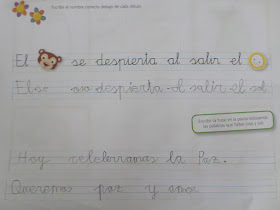 Escribir el nombre correcto debajo de cada dibujo.
El se despierta al salir el
El se despierta al salir el sol
Escribir la frase en la pauta
las palabras que
Hoy celebramos la Paz.
Queremos paz y amor